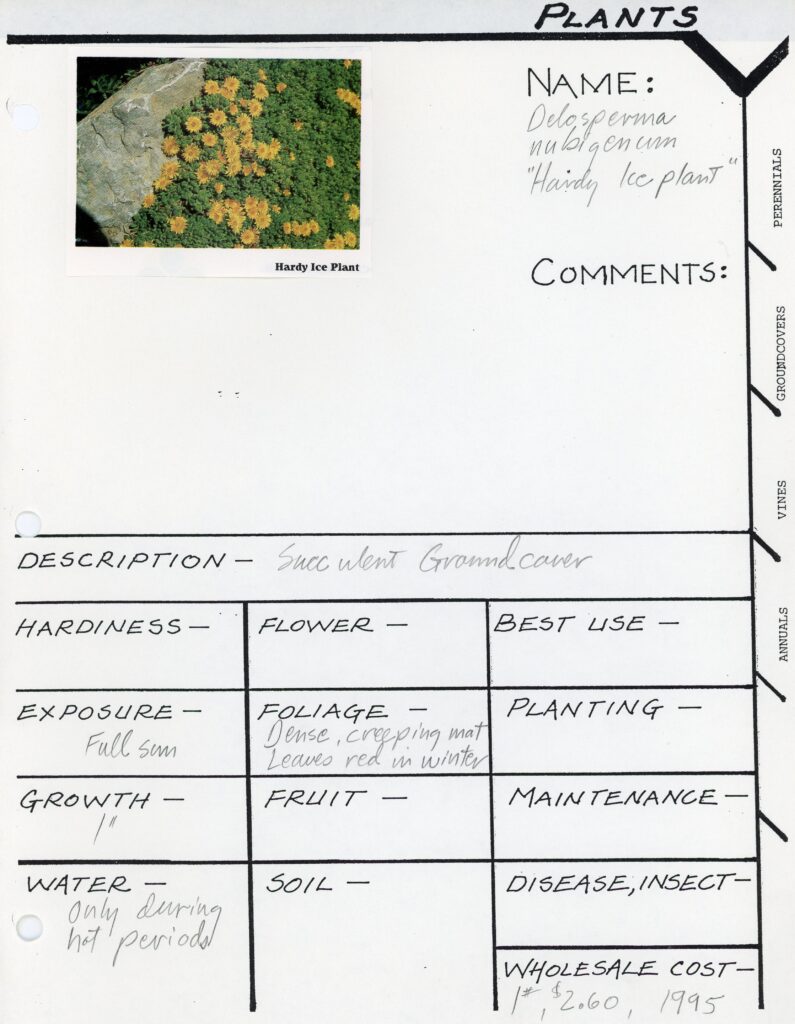 PLANTS
NAME:
Delosperma
nubigenum
"Hardy Ice plant"
Hardy Ice Plant
COMMENTS:
PERENNIALS
GROUNDCOVERS
VINES
ANNUALS
DESCRIPTION – Succulent Groundcover
HARDINESS –
FLOWER –
BEST USE –
EXPOSURE –
Full sun
FOLIAGE –
Dense, creeping mat
Leaves red in winter
PLANTING –
GROWTH –
1"
FRUIT –
MAINTENANCE –
WATER –
Only during
hot periods
SOIL –
DISEASE, INSECT –
WHOLESALE COST –
1#, $2.60, 1995